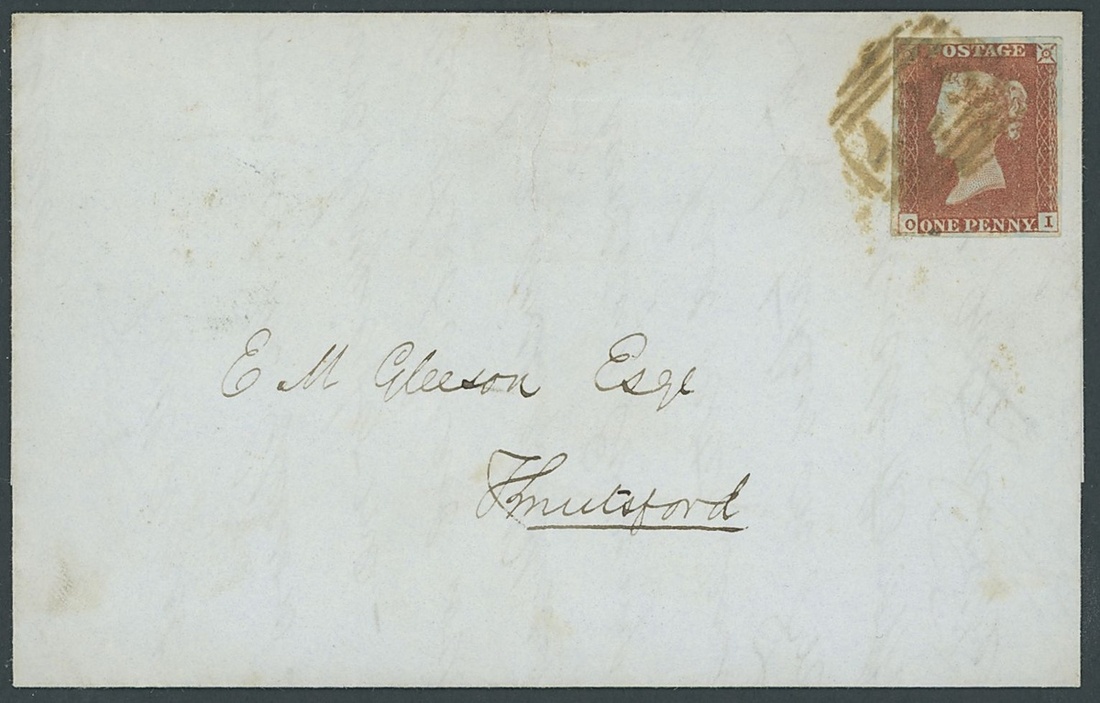 POSTAGE
O ONE PENNY I
E M Gleeson Esqe
Knutsford